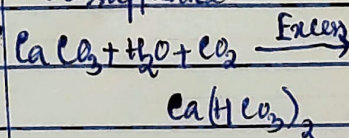 CaCO₃ + H₂O + CO₂ Excess →
Ca(HCO₃)₂